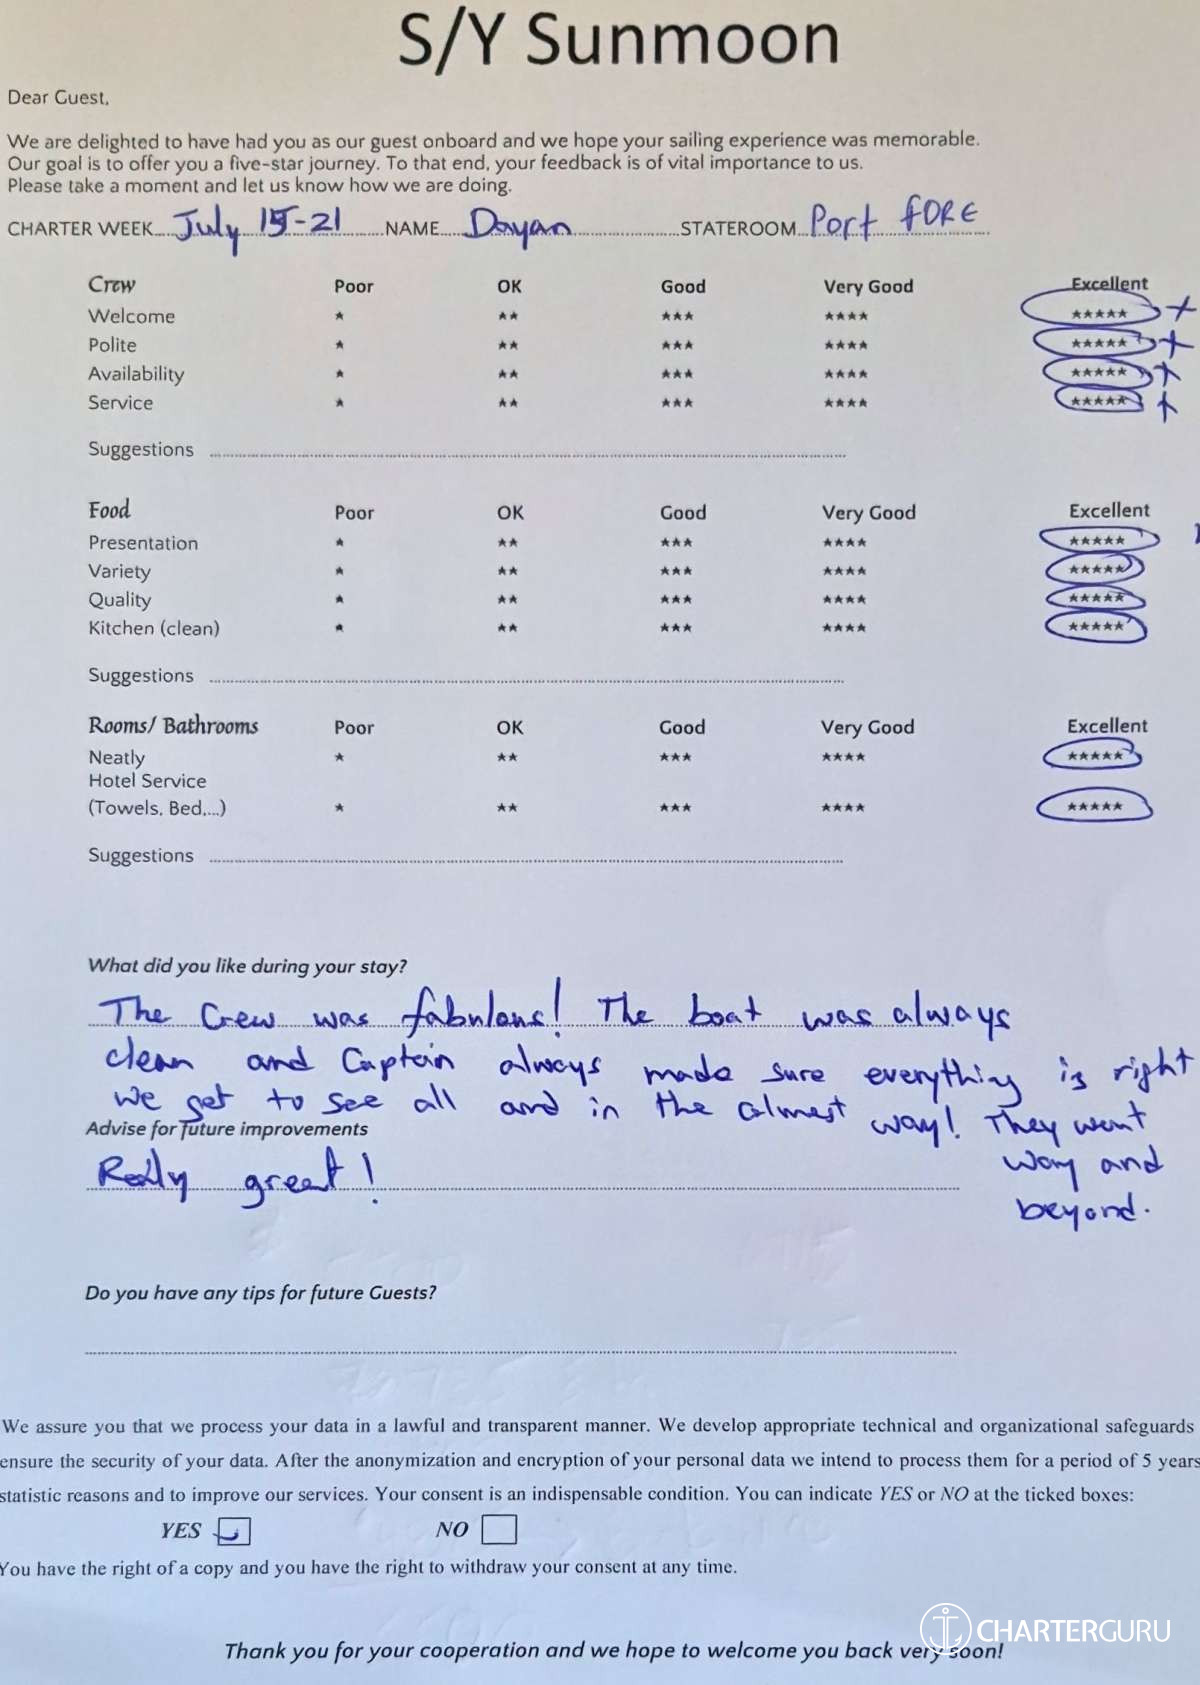 S/Y Sunmoon
Dear Guest,
We are delighted to have had you as our guest onboard and we hope your sailing experience was memorable.
Our goal is to offer you a five-star journey. To that end, your feedback is of vital importance to us.
Please take a moment and let us know how we are doing.
CHARTER WEEK July 15-21 NAME Dayan STATEROOM Port FORE
Crew Poor OK Good Very Good Excellent
Welcome * ** *** **** ***** +
Polite * ** *** **** ***** +
Availability * ** *** **** ***** +
Service * ** *** **** ***** +
Suggestions
Food Poor OK Good Very Good Excellent
Presentation * ** *** **** *****
Variety * ** *** **** *****
Quality * ** *** **** *****
Kitchen (clean) * ** *** **** *****
Suggestions
Rooms/ Bathrooms Poor OK Good Very Good Excellent
Neatly * ** *** **** *****
Hotel Service
(Towels, Bed,...) * ** *** **** *****
Suggestions
What did you like during your stay?
The Crew was fabulous! The boat was always
clean and Captain always made sure everything is right
we get to see all and in the calmest way! They went
way and
beyond.
Advise for future improvements
Really great!
Do you have any tips for future Guests?
We assure you that we process your data in a lawful and transparent manner. We develop appropriate technical and organizational safeguards
ensure the security of your data. After the anonymization and encryption of your personal data we intend to process them for a period of 5 years
statistic reasons and to improve our services. Your consent is an indispensable condition. You can indicate YES or NO at the ticked boxes:
YES NO
You have the right of a copy and you have the right to withdraw your consent at any time.
CHARTERGURU
Thank you for your cooperation and we hope to welcome you back very soon!